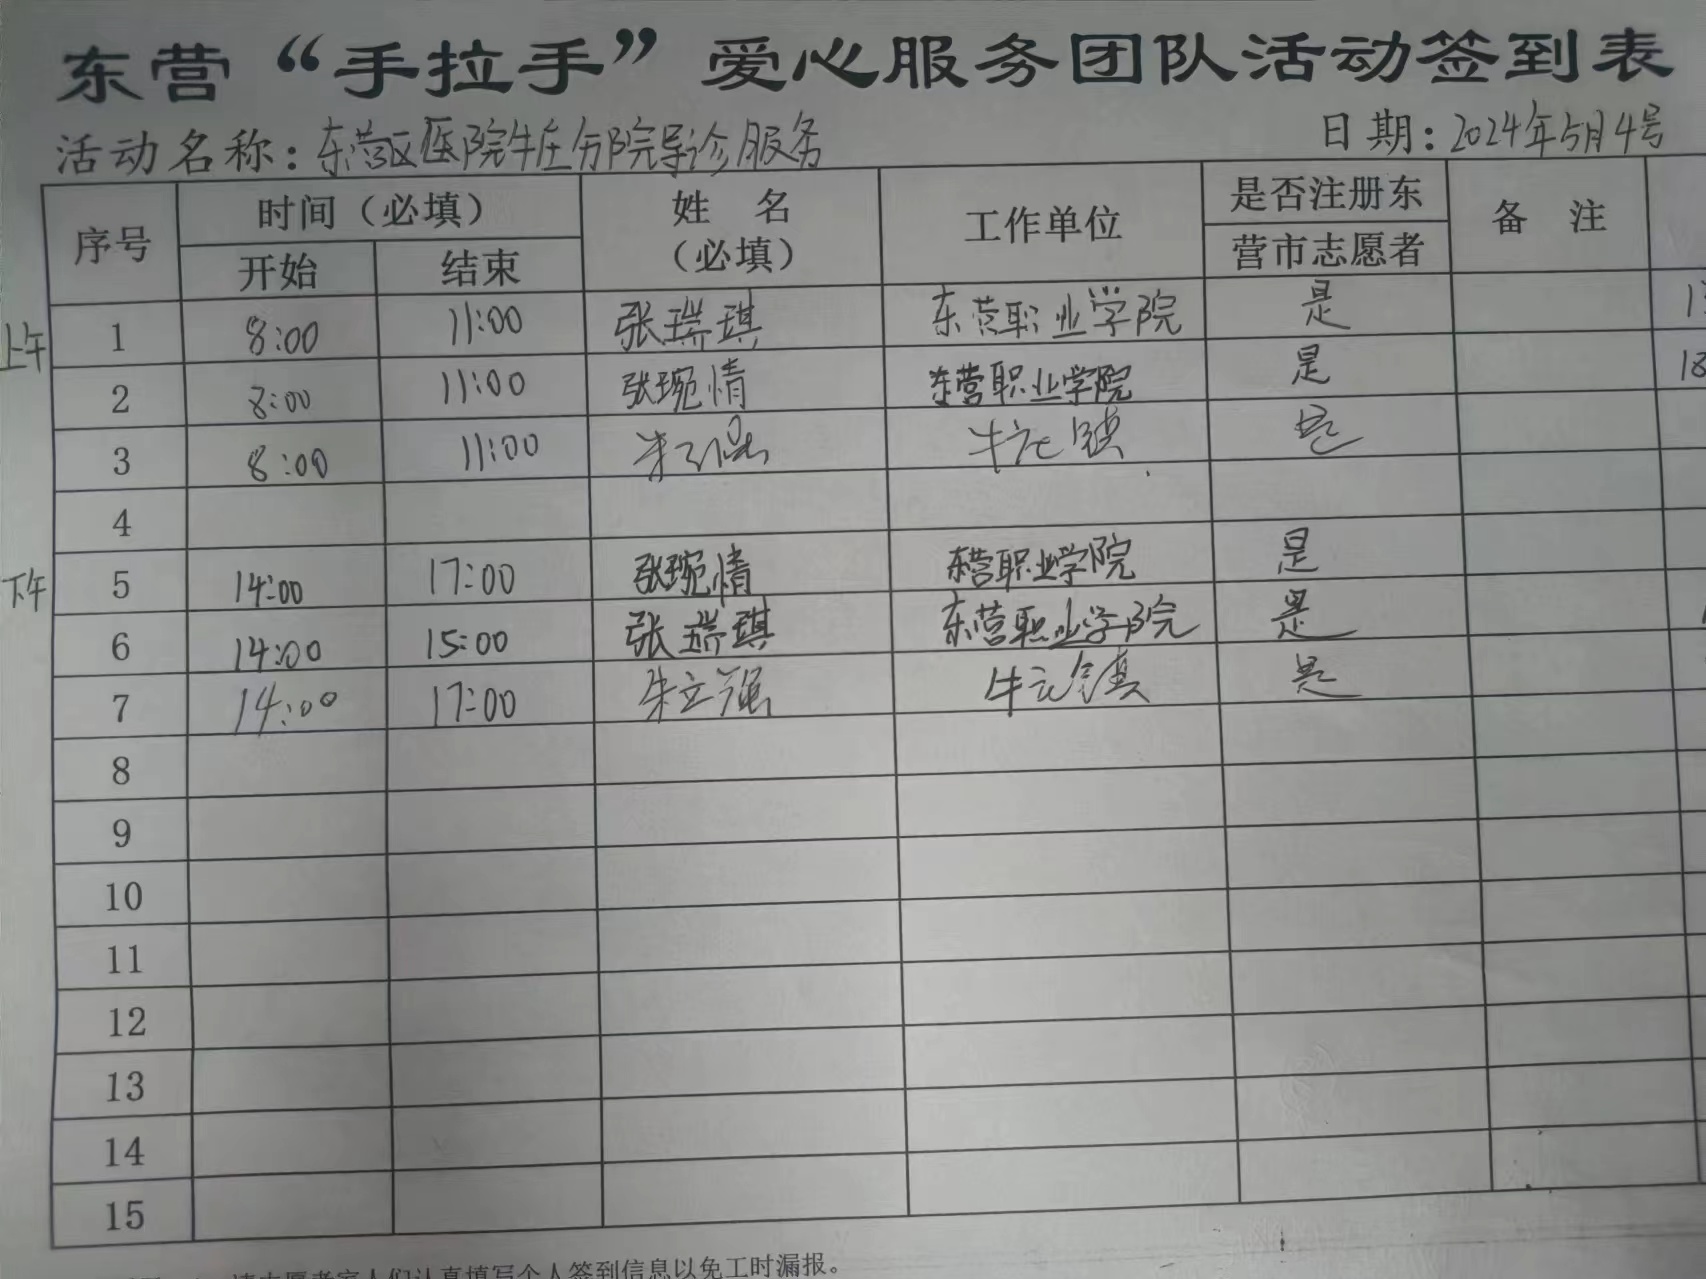 东营“手拉手”爱心服务团队活动签到表
活动名称：东营区医院牛庄分院导诊服务 日期：2024年5月4号
序号 时间（必填） 姓名（必填） 工作单位 是否注册东营市志愿者 备注
开始 结束
上午 1 8:00 11:00 张瑞琪 东营职业学院 是
2 8:00 11:00 张琬情 东营职业学院 是 18
3 8:00 11:00 朱立强 牛庄镇 是
4
下午 5 14:00 17:00 张琬情 东营职业学院 是
6 14:00 15:00 张瑞琪 东营职业学院 是
7 14:00 17:00 朱立强 牛庄镇 是
8
9
10
11
12
13
14
15
请志愿者家人们认真填写个人签到信息以免工时漏报。